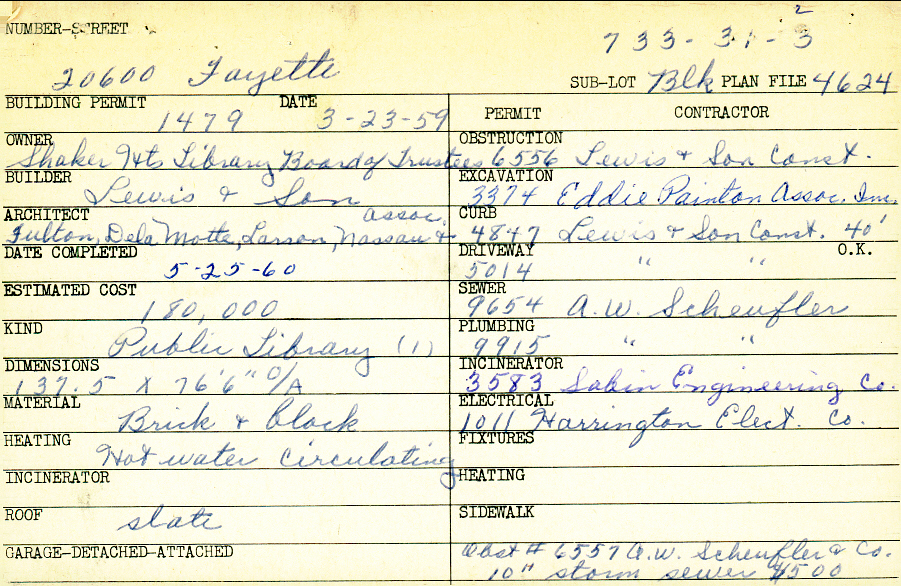 NUMBER-STREET
733-31-3
2
20600 Fayette
SUB-LOT Blk PLAN FILE 4624
BUILDING PERMIT 1479 DATE 3-23-59
PERMIT CONTRACTOR
OWNER Shaker Hts Library Board of Trustees
OBSTRUCTION 6556 Lewis & Son Const.
BUILDER Lewis & Son
EXCAVATION 3374 Eddie Painton Assoc. Inc.
ARCHITECT Fulton, Dela Motte, Larson, Nassau & assoc.
CURB 4847 Lewis & Son Const. 40'
DATE COMPLETED 5-25-60
DRIVEWAY 5014 " " O.K.
ESTIMATED COST 180,000
SEWER 9654 A.W. Scheufler
KIND Public Library (1)
PLUMBING 9915 " "
DIMENSIONS 137.5 X 76'6" O/A
INCINERATOR 3583 Sabin Engineering Co.
MATERIAL Brick & block
ELECTRICAL 1011 Harrington Elect. Co.
HEATING Hot water circulating
FIXTURES
INCINERATOR
HEATING
ROOF slate
SIDEWALK
GARAGE-DETACHED-ATTACHED
Obst # 6557 A.W. Scheufler & Co.
10" storm sewer $500